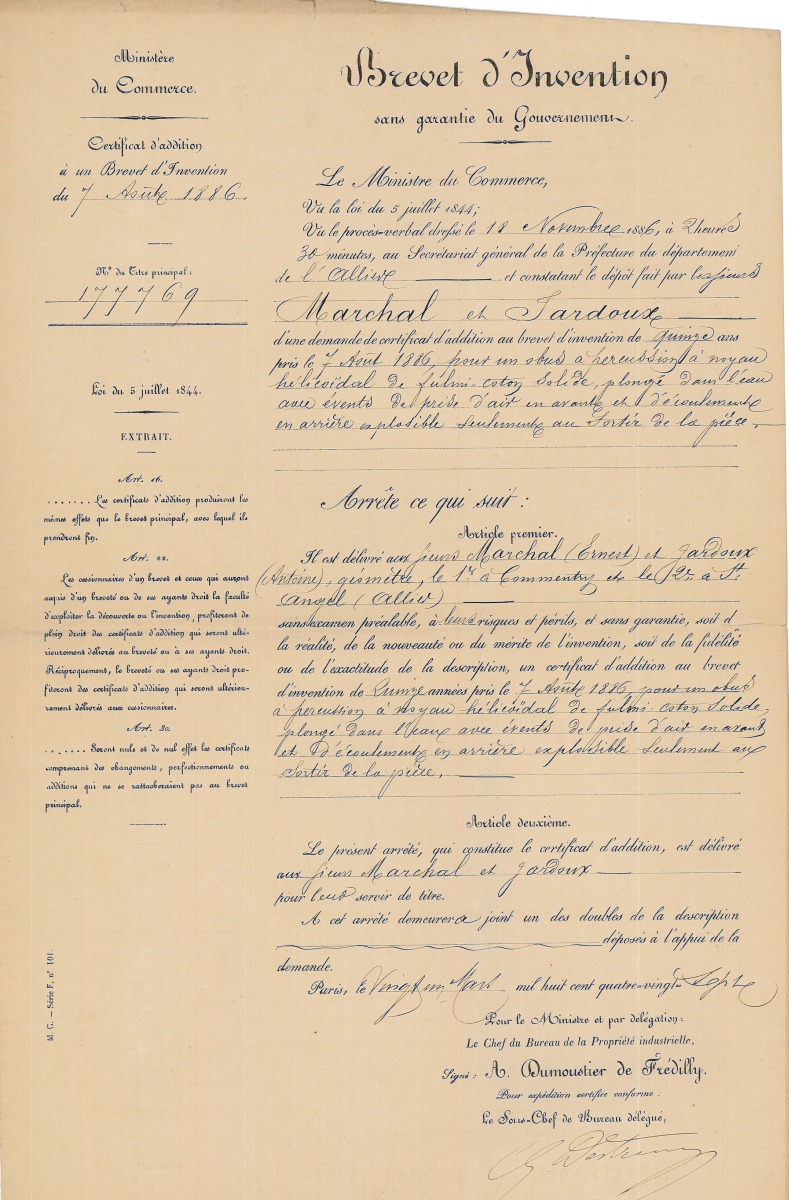 Ministère
du Commerce.
Certificat d'addition
à un Brevet d'Invention
du 7 Août 1886.
N° du Titre principal:
177769
Loi du 5 juillet 1844.
EXTRAIT.
Art. 16.
....... Les certificats d'addition produiront les
mêmes effets que le brevet principal, avec lequel ils
prendront fin.
Art. 22.
Les cessionnaires d'un brevet et ceux qui auront
acquis d'un breveté ou de ses ayants droit la faculté
d'exploiter la découverte ou l'invention, profiteront de
plein droit des certificats d'addition qui seront ulté-
rieurement délivrés au breveté ou à ses ayants droit.
Réciproquement, le breveté ou ses ayants droit pro-
fiteront des certificats d'addition qui seront ultérieu-
rement délivrés aux cessionnaires.
Art. 30.
....... Seront nuls et de nul effet les certificats
comprenant des changements, perfectionnements ou
additions qui ne se rattacheraient pas au brevet
principal.
M. C. — Série F, n° 101.
Brevet d'Invention
sans garantie du Gouvernement.
Le Ministre du Commerce,
Vu la loi du 5 juillet 1844;
Vu le procès-verbal dressé le 18 Novembre 1886, à 2 heures
30 minutes, au Secrétariat général de la Préfecture du département
de l'Allier et constatant le dépôt fait par les sieurs
Marchal et Jardoux
d'une demande de certificat d'addition au brevet d'invention de quinze ans
pris le 7 Août 1886, pour un obus à percussion à noyau
hélicoïdal de fulmi-coton solide, plongé dans l'eau
avec évents de prise d'air en avant et d'écoulement
en arrière explosible seulement au sortir de la pièce.
Arrête ce qui suit:
Article premier.
Il est délivré aux sieurs Marchal (Ernest) et Jardoux
(Antoine), géomètre, le 1er à Commentry et le 2e à St
Angel (Allier)
sans examen préalable, à leurs risques et périls, et sans garantie, soit d
la réalité, de la nouveauté ou du mérite de l'invention, soit de la fidélité
ou de l'exactitude de la description, un certificat d'addition au brevet
d'invention de quinze années pris le 7 Août 1886, pour un obus
à percussion à noyau hélicoïdal de fulmi-coton solide,
plongé dans l'eau avec évents de prise d'air en avant
et d'écoulement en arrière explosible seulement au
sortir de la pièce.
Article deuxième.
Le présent arrêté, qui constitue le certificat d'addition, est délivré
aux sieurs Marchal et Jardoux
pour leur servir de titre.
A cet arrêté demeurera joint un des doubles de la description
déposés à l'appui de la
demande.
Paris, le vingt un Mars mil huit cent quatre-vingt-sept
Pour le Ministre et par délégation:
Le Chef du Bureau de la Propriété industrielle,
Signé: A. Dumoustier de Frédilly.
Pour expédition certifiée conforme:
Le Sous-Chef de Bureau délégué,